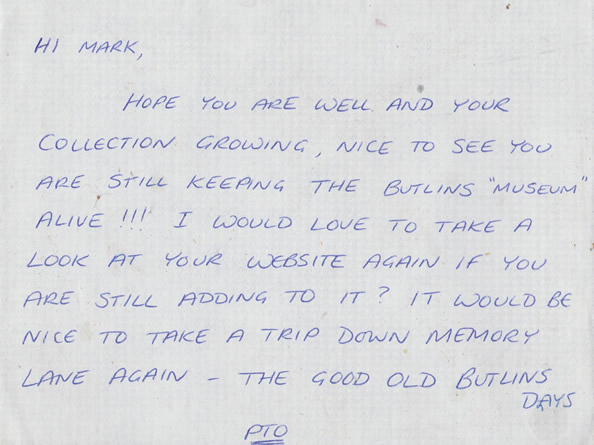 HI MARK,
HOPE YOU ARE WELL AND YOUR
COLLECTION GROWING, NICE TO SEE YOU
ARE STILL KEEPING THE BUTLINS "MUSEUM"
ALIVE !!! I WOULD LOVE TO TAKE A
LOOK AT YOUR WEBSITE AGAIN IF YOU
ARE STILL ADDING TO IT? IT WOULD BE
NICE TO TAKE A TRIP DOWN MEMORY
LANE AGAIN – THE GOOD OLD BUTLINS
DAYS
PTO